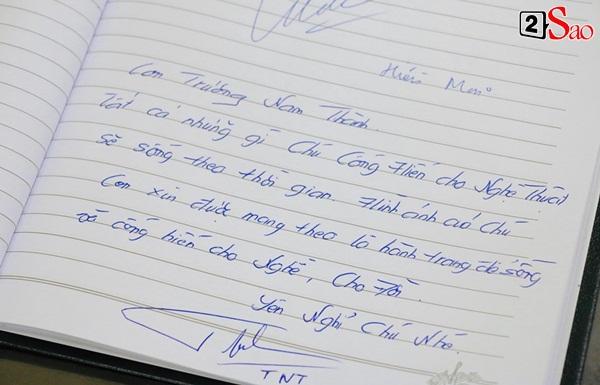 2Sao
Hiếu Mini
Con Trương Nam Thành.
Tất cả những gì Chú Cống Hiến cho Nghệ Thuật
sẽ sống theo thời gian. Hình ảnh của Chú
Con xin được mang theo là hành trang để sống
và cống hiến cho Nghề, Cho Đời.
Yên Nghỉ Chú Nhé.
TNT